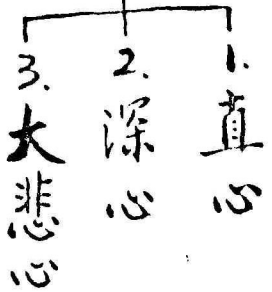 1.直心
2.深心
3.大悲心